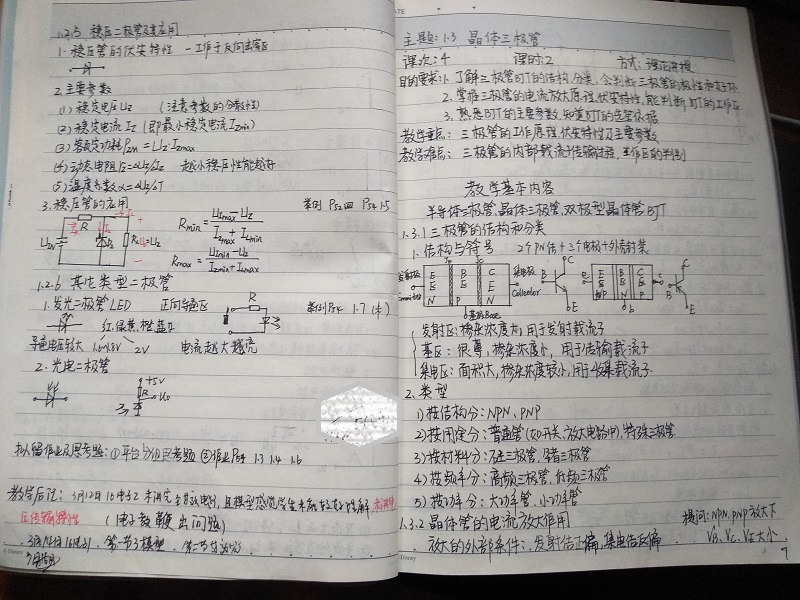 1.2.5 稳压二极管及其应用
1. 稳压管的伏安特性 — 工作于反向击穿区
2. 主要参数
(1) 稳定电压Uz (注意参数的分散性)
(2) 稳定电流Iz (即最小稳定电流Izmin)
(3) 额定功耗Pzm = Uz·Izmax
(4) 动态电阻rz=ΔUz/ΔIz 越小稳压性能越好
(5) 温度系数α=ΔUz/ΔT
3. 稳压管的应用 案例 P52 P54 1.5
Rmin = UImax-Uz / Izmax+ILmin
Rmax = UImin-Uz / Izmin+ILmax
R
UIN
RL
1.2.6 其它类型二极管
1. 发光二极管LED 正向导通区 案例P54 1.7 (本)
R
红.绿.黄.橙.蓝.
导通电压较大 1.6~1.8V 2V 电流越大越亮
2. 光电二极管
+5V
R
Uo
拟留作业及思考题: ①平台 思考题 ②作业P54 1.3 1.4 1.6
教学后记: 3月12日
主题: 1.3 晶体三极管
课次: 4 课时: 2 方式: 理论讲授
目的要求: 1. 了解三极管BJT的结构、分类, 会判断三极管的极性和好坏
2. 掌握三极管的电流放大原理、伏安特性, 能判断BJT的工作区
3. 熟悉BJT的主要参数, 知道BJT的选管依据
教学重点: 三极管的工作原理、伏安特性及主要参数
教学难点: 三极管的内部载流子传输过程, 工作区的判别
教学基本内容
半导体三极管、晶体三极管、双极型晶体管 BJT
1.3.1 三极管的结构和分类
1. 结构与符号 2个PN结+3个电极+外壳封装
发射极
集电极
Collector
基极Base
发射区: 掺杂浓度大, 用于发射载流子
基区: 很薄, 掺杂浓度小, 用于传输载流子
集电区: 面积大, 掺杂浓度较小, 用于收集载流子
2. 类型
1) 按结构分: NPN、PNP
2) 按用途分: 普通管(如开关、放大电路中), 特殊三极管
3) 按材料分: 硅三极管、锗三极管
4) 按频率分: 高频三极管、低频三极管
5) 按功率分: 大功率管、小功率管
1.3.2 晶体管的电流放大作用 提问: NPN、PNP放大下
放大的外部条件: 发射结正偏, 集电结反偏 VB、VC、VE大小
7